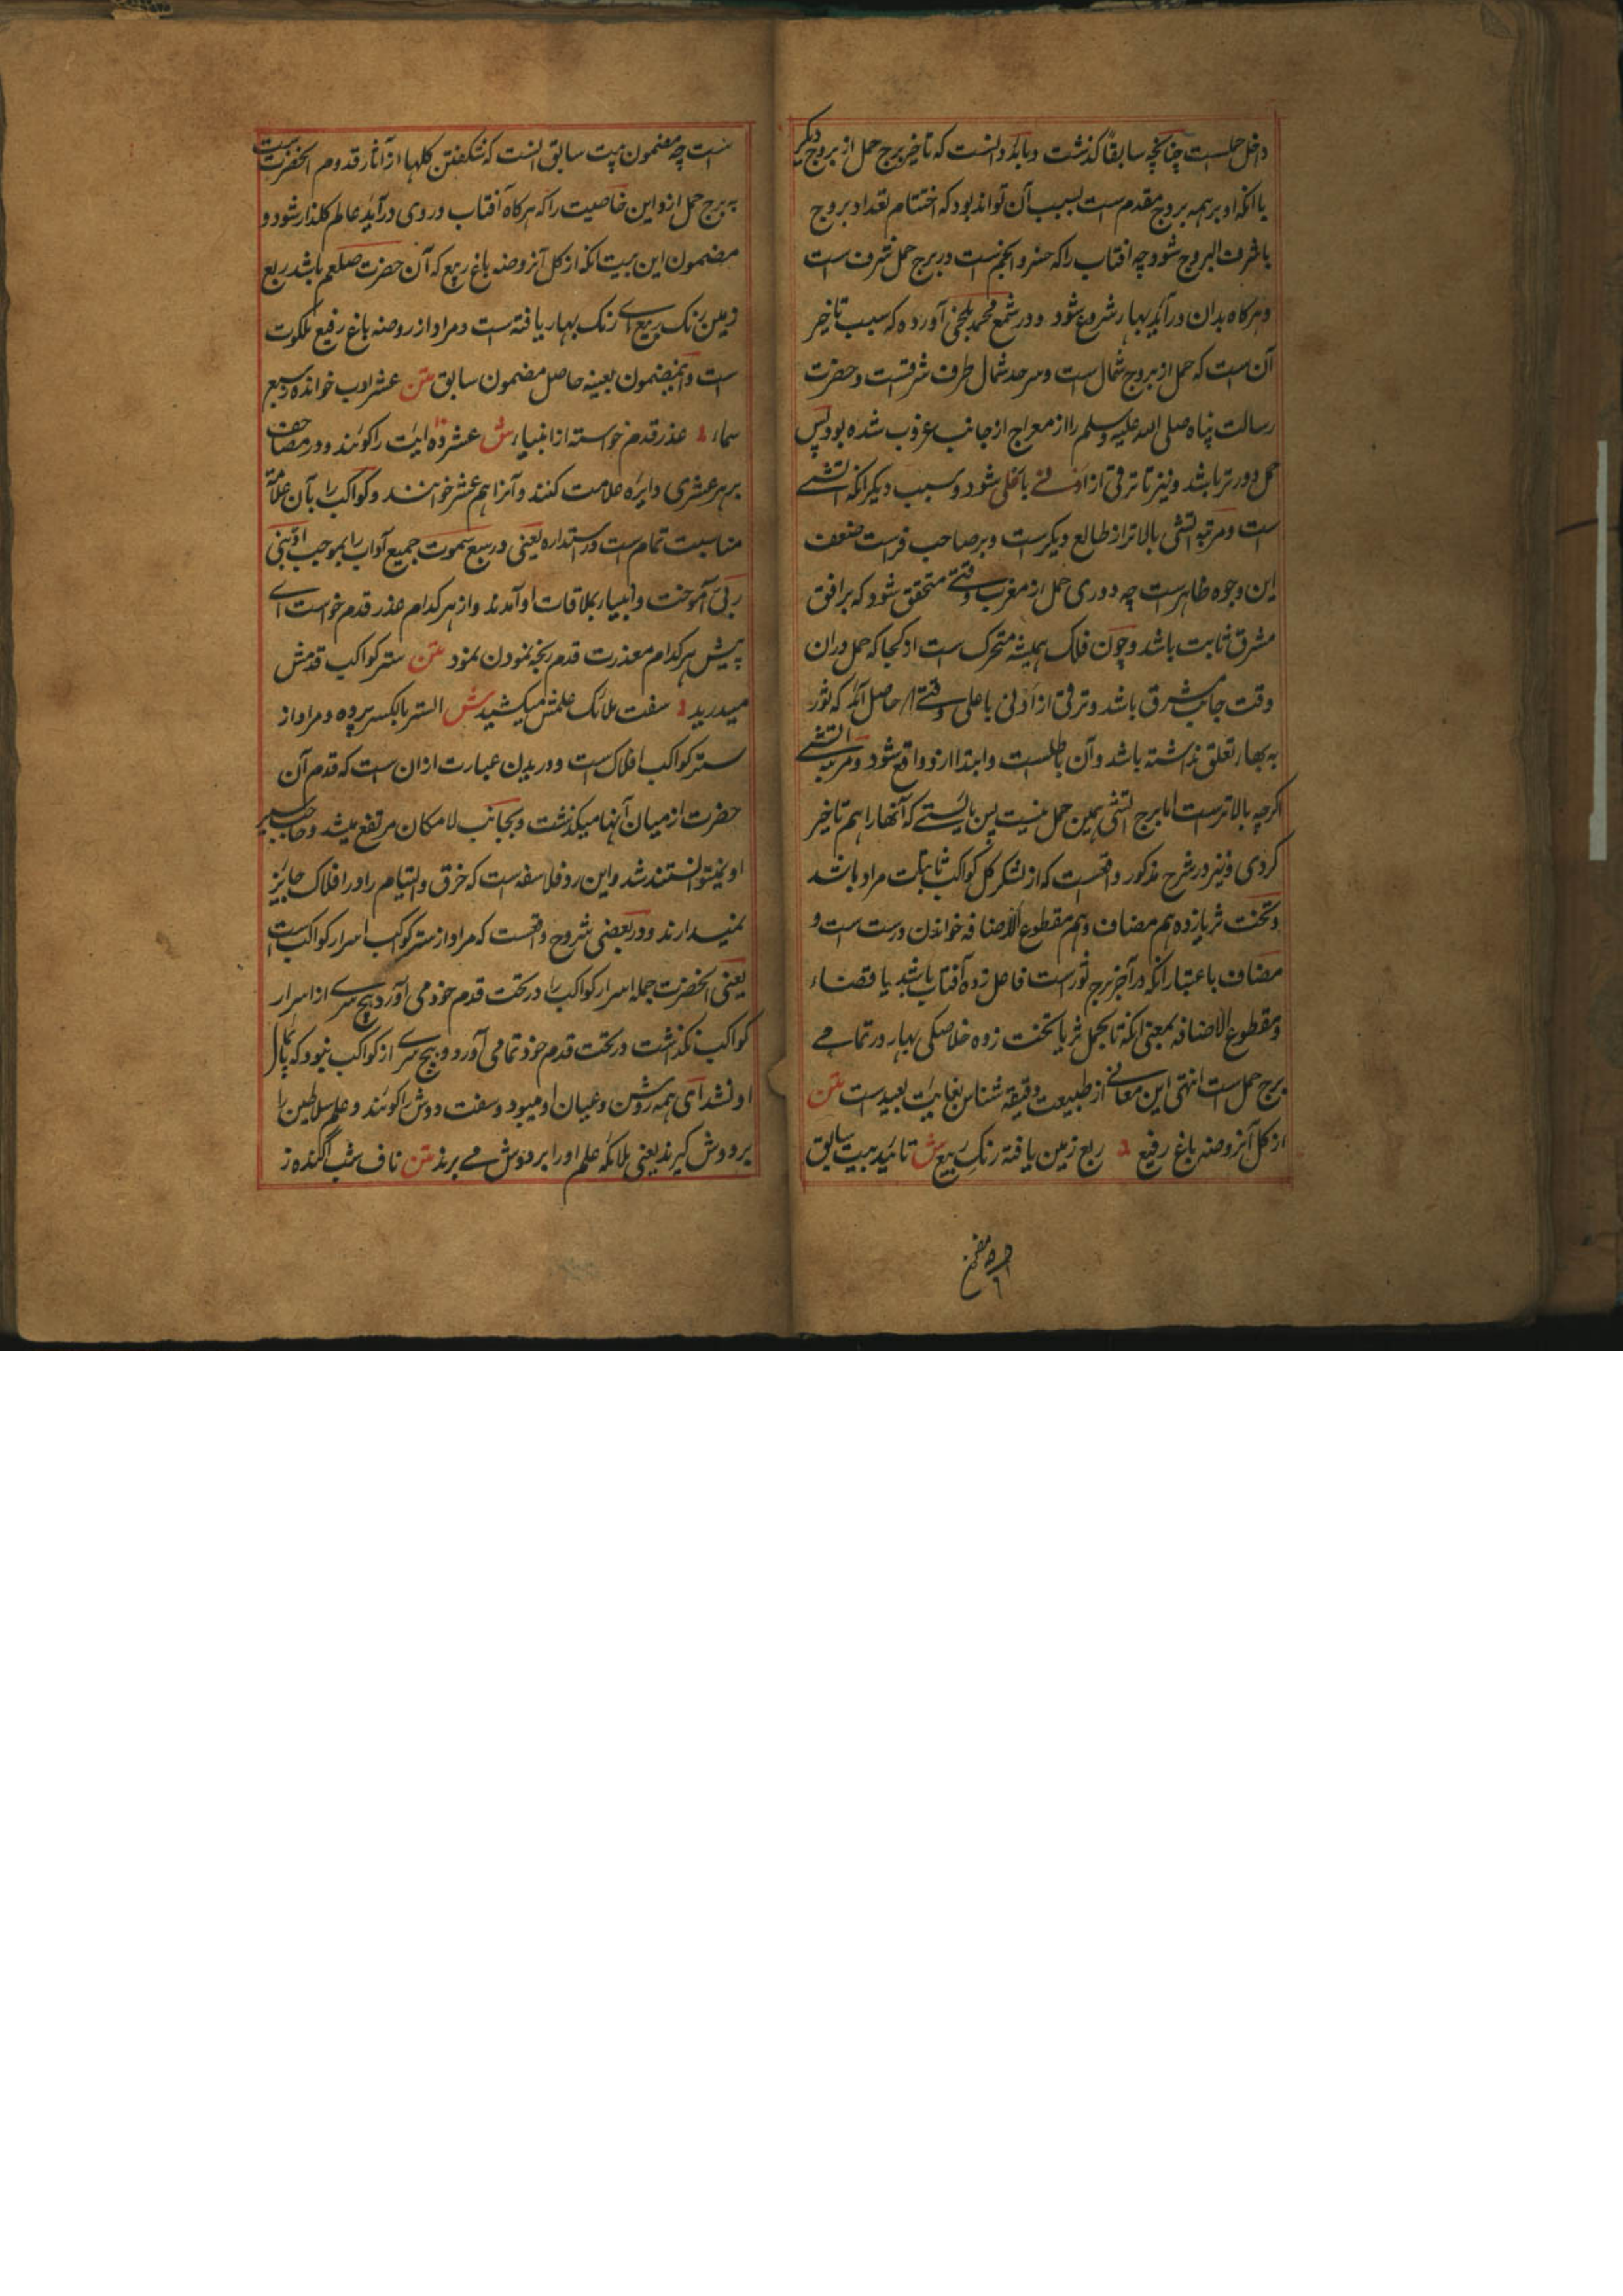 داخل حملست چنانچه سابقاً کذشت و باید دانست که تاخیر برج حمل از بروج دیگر
با انکه او بر همه بروج مقدم ست بسبب آن تواند بود که اختتام تعداد بروج
باشرف البروج شود چه افتاب را که خسرو انجم ست در برج حمل شرف ست
و هر کاه بدان در آید بهار شروع شود و در شرح محمد بلخی آورده که سبب تاخیر
آن ست که حمل از بروج شمال ست و سرحد شمال طرف شرقست و حضرت
رسالت پناه صلی الله علیه وسلم را از معراج از جانب غروب شده بود پس
حمل دورتر باشد و نیز تا ترقی از ادنی باعلی شود و سبب دیکر انکه آتشی
ست و مرتبه آتشی بالاتر از طالع دیکرست و بر صاحب فراست ضعف
این وجوه ظاهرست چه دوری حمل از مغرب وقتی متحقق شود که بر افق
مشرق ثابت باشد و چون فلک همیشه متحرک ست از کجا که حمل دران
وقت جانب مشرق باشد و ترقی از ادنی باعلی وقتی حاصل آید که ثور
به بهار تعلق نداشته باشد و آن باطلست و ابتدا ازو واقع شود و مرتبه آتشی
اکرچه بالاترست اما برج آتشی همین حمل نیست پس بایستی که آنها را هم تاخیر
کردی و نیز در شرح مذکور واقعست که از لشکر کل کواکب ثابتات مراد باشد
و تخت ثریا زده هم مضاف و هم مقطوع الاضافه خواندن درست ست و
مضاف باعتبار انکه در آخر برج ثورست فاعل زده آفتاب باشد یا قضاء
و مقطوع الاضافه بمعنی انکه تا بحمل ثریا تخت زده خلاصکی بهار در تمامی
برج حمل ست انتهی این معانی از طبیعت دقیقه شناس بغایت بعیدست متن
از کل آنروضه باغ رفیع ربع زمین یافته رنک ربیع ش تائید بیت سابق
ست چه مضمون بیت سابق انست که شکفتن کلها از آثار قدوم انحضرت ست
به برج حمل ازو این خاصیت را که هر کاه آفتاب در وی در آید عالم کلذار شود و
مضمون این بیت انکه از کل آنروضه باغ ربیع که آن حضرت صلعم باشد ربع
زمین رنک ربیع ای رنک بهار یافته ست و مراد از روضه باغ رفیع ملکوت
ست و اینمضمون بعینه حاصل مضمون سابق متن عشر ادب خوانده ز سبع
سماء عذر قدم خواسته از انبیاء ش عشر ده ایت را کویند و در مصاحف
بر هر عشری دایره علامت کنند و آنرا هم عشر خوانند و کواکب را بآن علامة
مناسبت تمام ست در استداره یعنی در سبع سموت جمیع آداب را بموجب ادبنی
ربی آموخت و انبیاء بملاقات او آمدند و از هر کدام عذر قدم خواست ای
پیش هر کدام معذرت قدم رنجه نمودن نمود متن ستر کواکب قدمش
میدرید سفت ملائک علمش میکشید ش الستر بالکسر پرده و مراد از
ستر کواکب افلاک ست و دریدن عبارت ازان ست که قدم آن
حضرت از میان آنها میکذشت و بجانب لامکان مرتفع میشد و حاجب سیر
او نمیتوانستند شد و این رد فلاسفه ست که خرق و التیام را در افلاک جایز
نمیدارند و در بعضی شروح واقعست که مراد از ستر کواکب اسرار کواکب ست
یعنی انحضرت جمله اسرار کواکب را در تحت قدم خود می آورد هیچ سری از اسرار
کواکب نکذاشت در تحت قدم خود تمامی آورد و هیچ سری از کواکب نبود که پامال
او نشد ای همه روشن و عیان او میبود و سفت دوش را کویند و علم سلاطین را
بر دوش کیرند یعنی ملائکه علم او را بر دوش می برند متن ناف شب آکنده ز